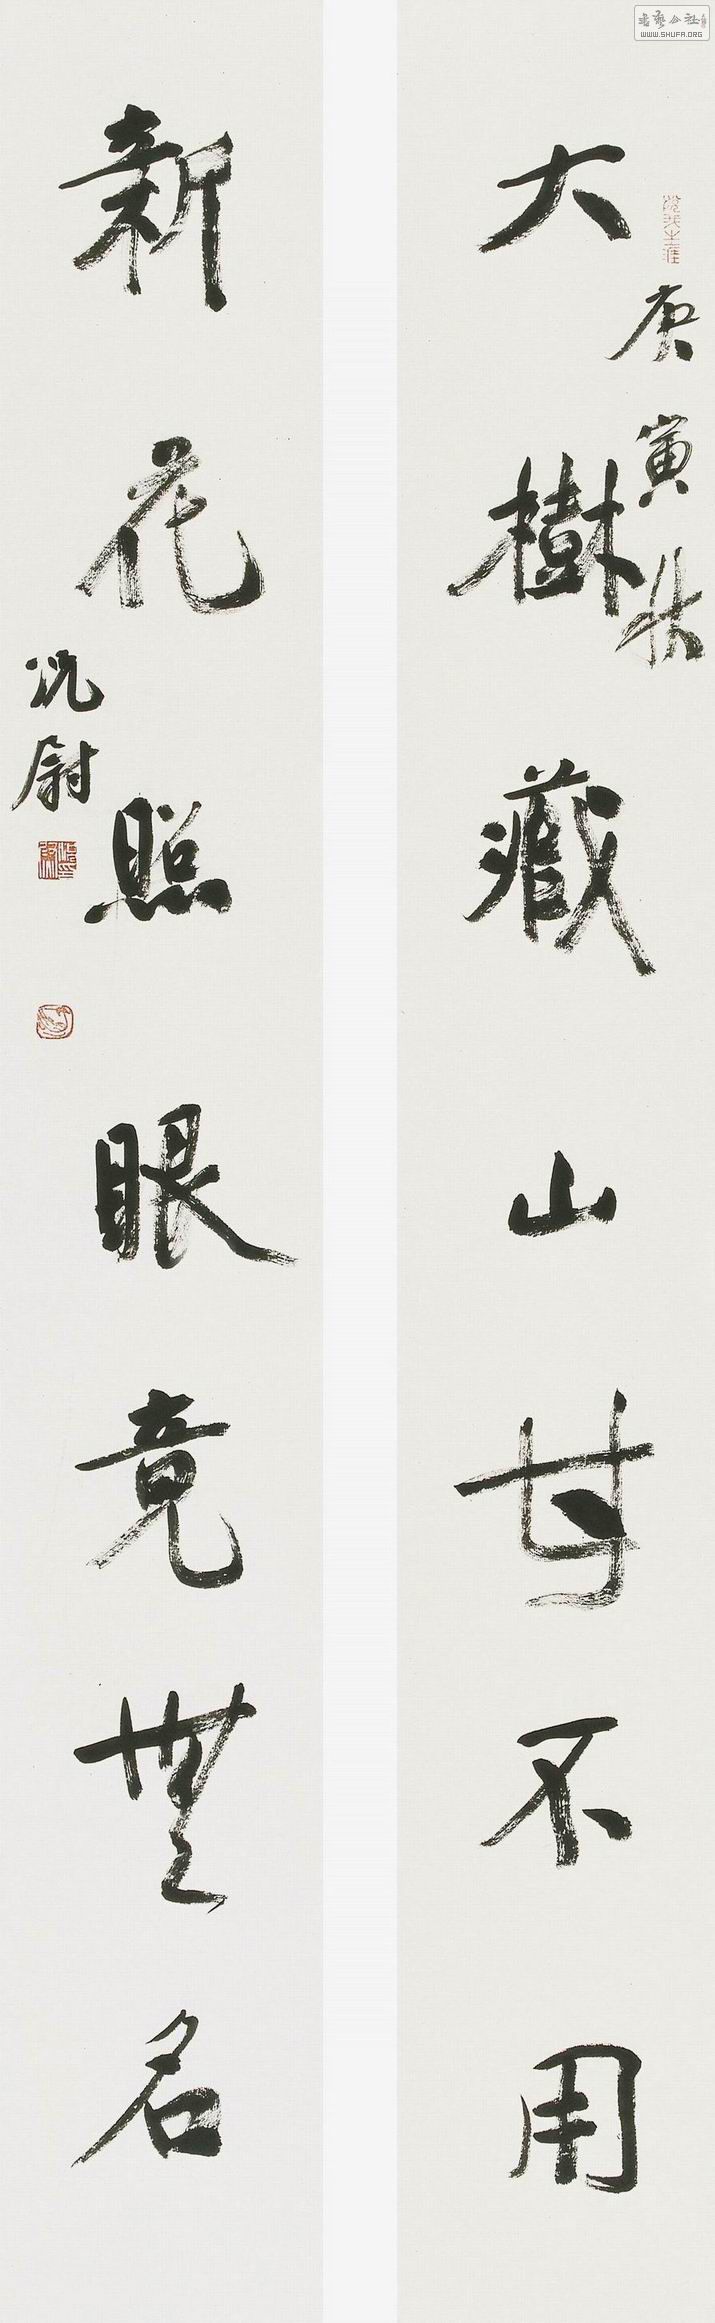 大樹藏山甘不用
庚寅秋
新花照眼竟無名
況尉
書藝公社
WWW.SHUFA.ORG